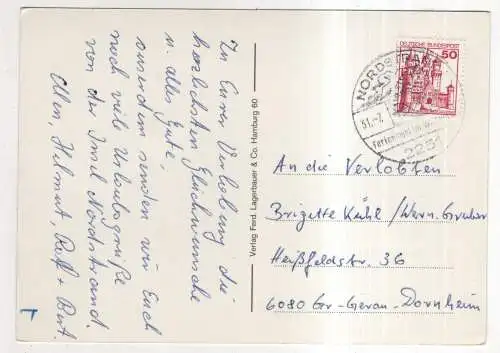 Zu Eurer Verlobung die
herzlichsten Glückwünsche
u. alles Gute,
ausserdem senden wir Euch
noch viele Urlaubsgrüße
von der Insel Nordstrand.
Helmut, + Bert.
Verlag Ferd. Lagerbauer & Co. Hamburg 60
DEUTSCHE BUNDESPOST
50
NORDSTRAND
31.-7.
Ferieninsel im
2251
An die Verlobten
Brigitte Kühl / Wern. Gruber
Heißfeldstr. 36
6080 Gr-Gerau-Dornheim